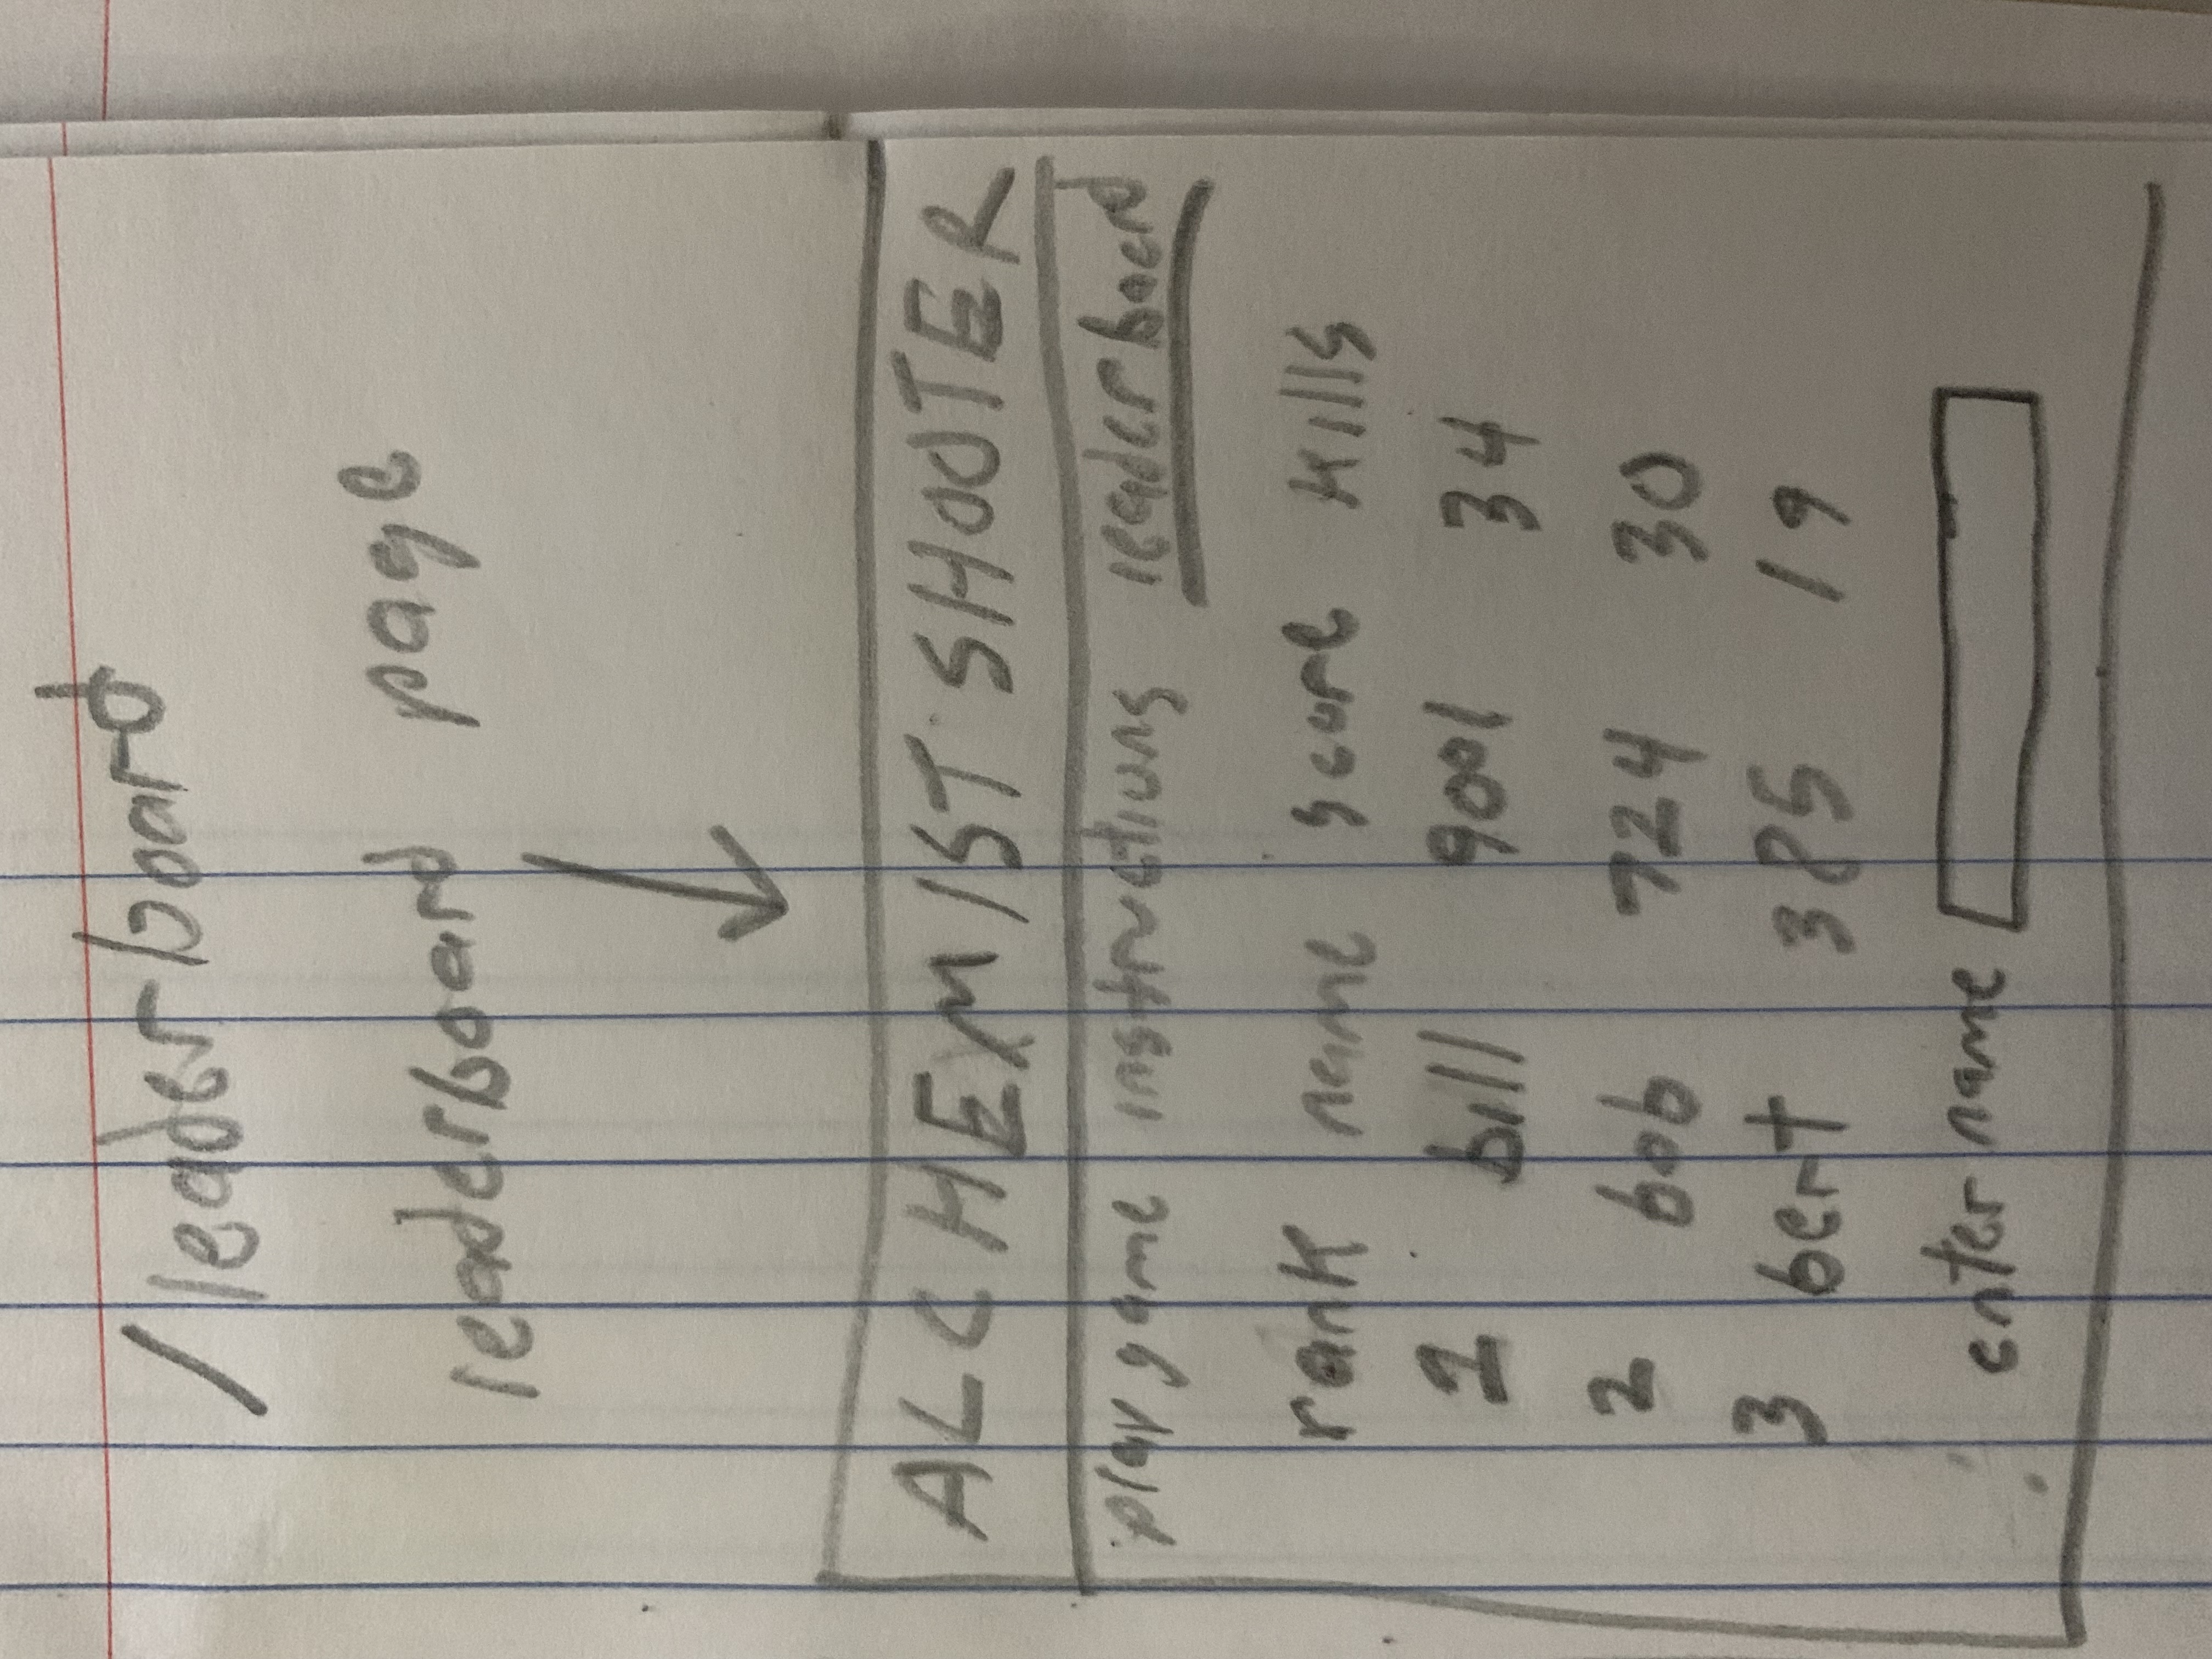 /leaderboard
leaderboard page
ALCHEMIST SHOOTER
play game instructions leaderboard
rank name score kills
1 bill 9001 34
2 bob 724 30
3 bert 385 19
enter name